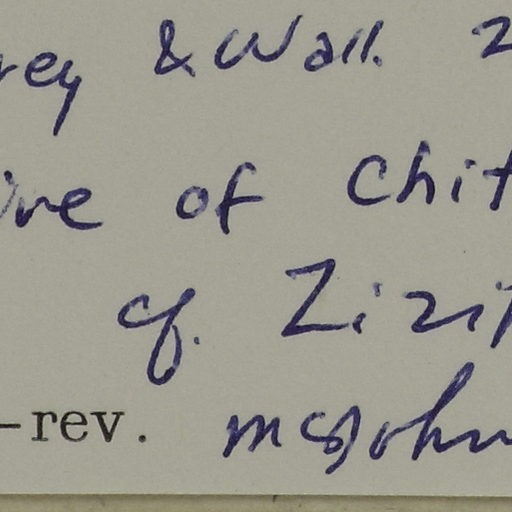 rey & Wall. 2
ine of Chit
cf. Zizip
-rev. MCJohn